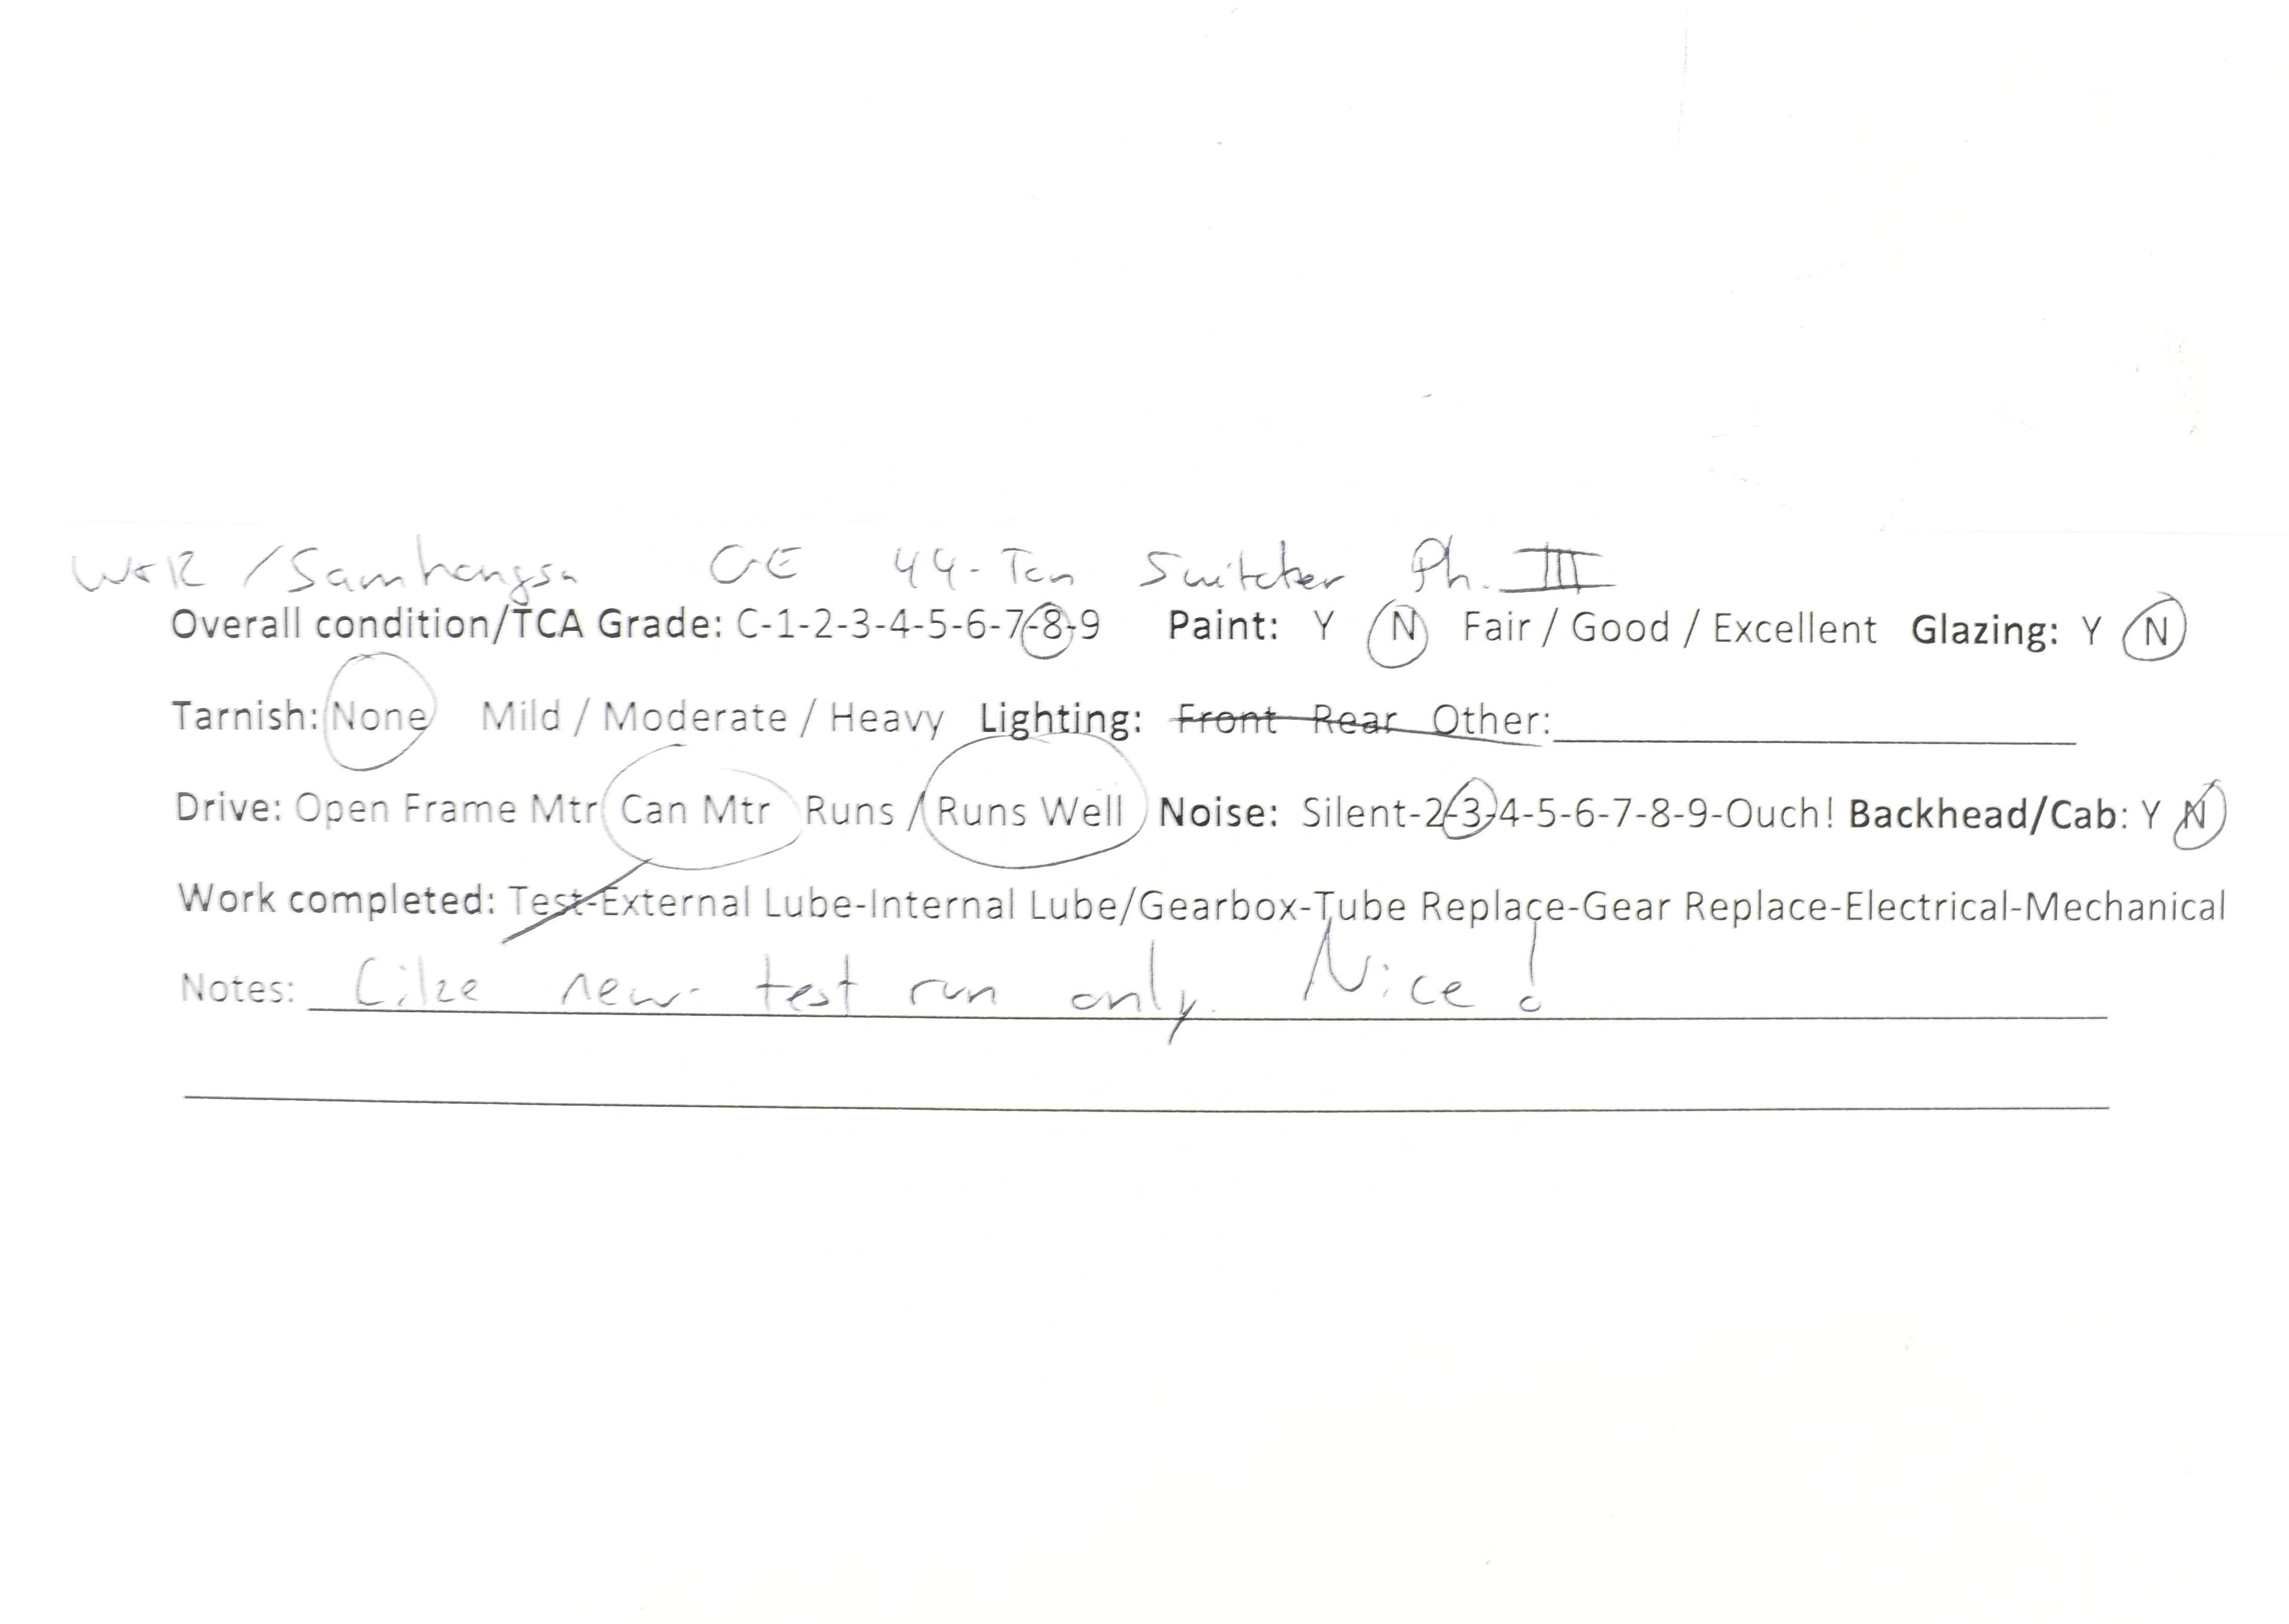 WSR / Samhongsa GE 44-Ton Switcher Ph. III
Overall condition/TCA Grade: C-1-2-3-4-5-6-7-8-9 Paint: Y N Fair / Good / Excellent Glazing: Y N
Tarnish: None Mild / Moderate / Heavy Lighting: Front Rear Other:
Drive: Open Frame Mtr Can Mtr Runs / Runs Well Noise: Silent-2-3-4-5-6-7-8-9-Ouch! Backhead/Cab: Y N
Work completed: Test-External Lube-Internal Lube/Gearbox-Tube Replace-Gear Replace-Electrical-Mechanical
Notes: Like new- test run only. Nice!